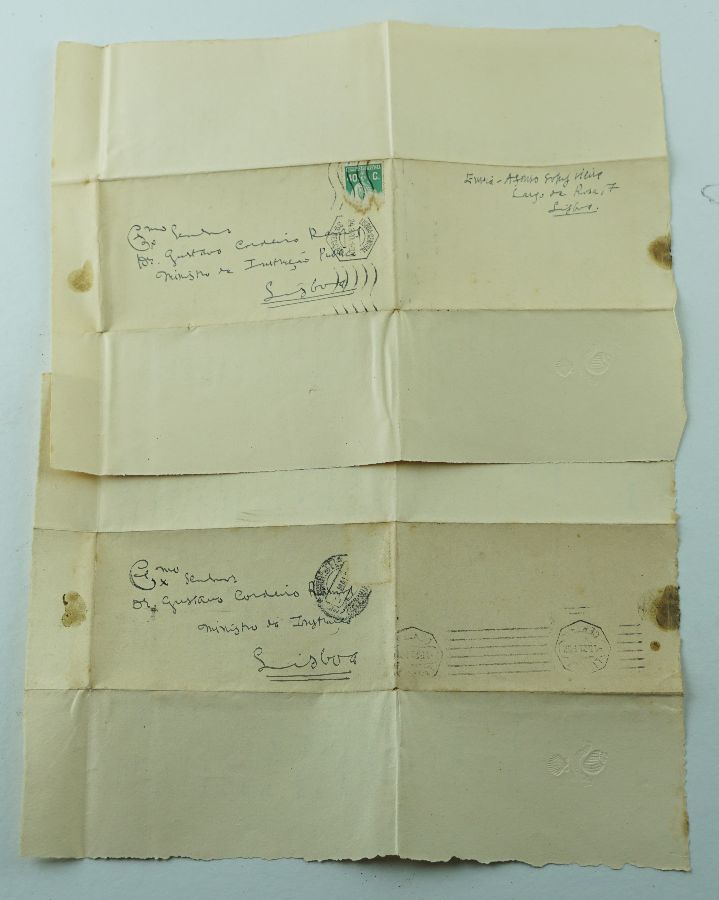 10 C.
Envia - Afonso Lopes Vieira
Largo da Rosa, 7
Lisboa.
Exmo Senhor
Dr. Gustavo Cordeiro Ramos
Ministro da Instrução Publica
Lisboa
Exmo Senhor
Dr. Gustavo Cordeiro Ramos
Ministro da Instrução
Lisboa